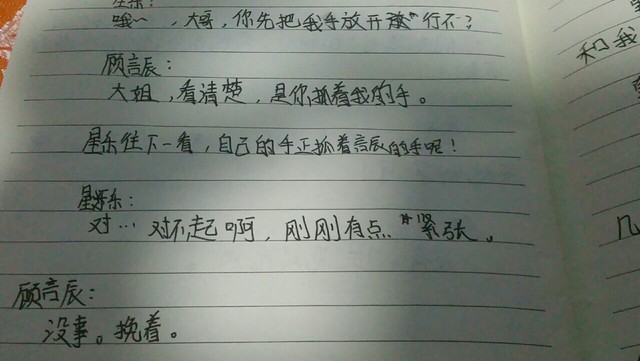 哦~，大哥，你先把我手放开 行不？
顾言辰：
大姐，看清楚，是你抓着我的手。
星乐往下一看，自己的手正抓着言辰的手呢！
星乐：
对… 对不起啊，刚刚有点"紧张。
顾言辰：
没事。挽着。
和我
几